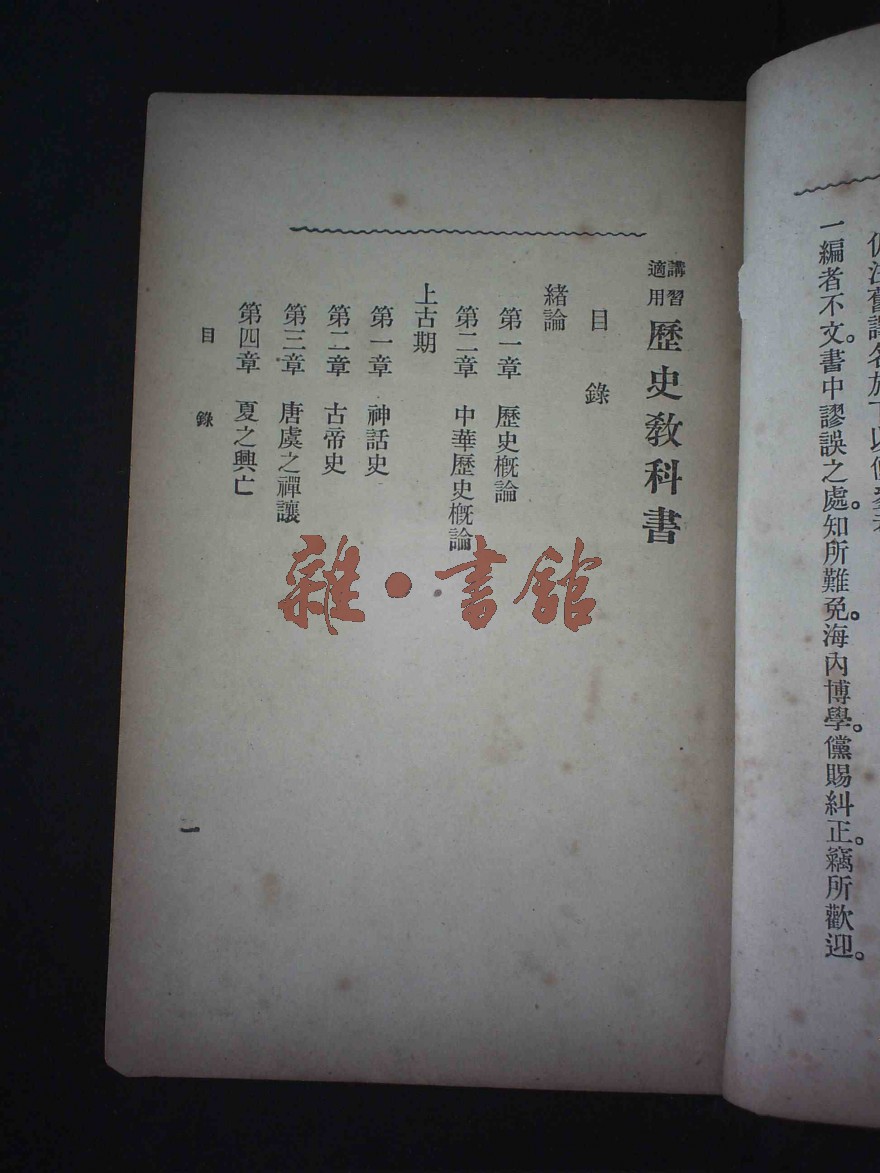 一編者不文。書中謬誤之處。知所難免。海內博學。儻賜糾正。竊所歡迎。
講習適用 歷史教科書
目錄
緒論
第一章 歷史槪論
第二章 中華歷史槪論
上古期
第一章 神話史
第二章 古帝史
第三章 唐虞之禪讓
第四章 夏之興亡
目錄 一
雜·書館